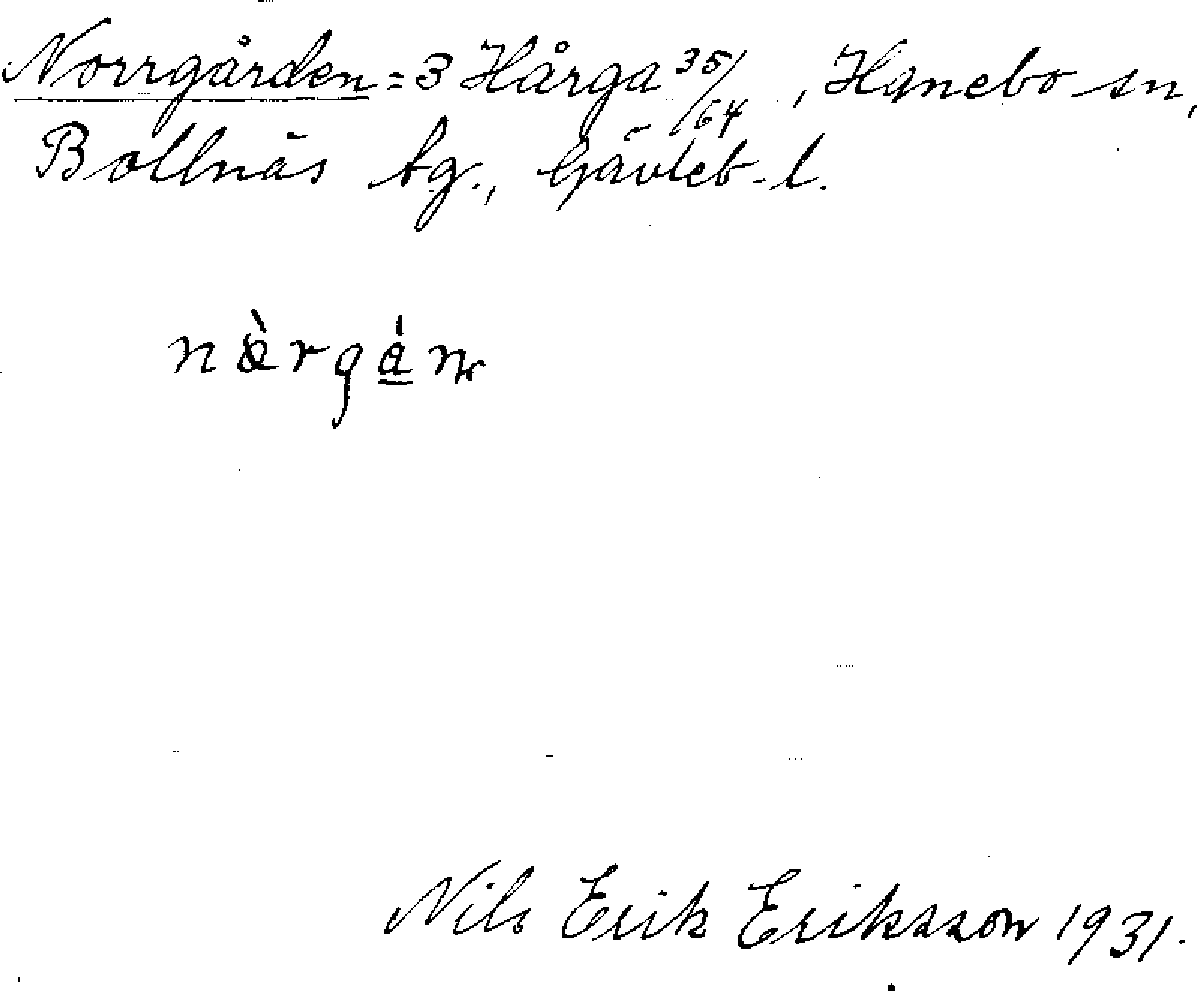 Norrgården = 3 Hårga 35/64, Hanebo sn,
Bollnäs tg., Gävleb. l.
nærgán
Nils Erik Eriksson 1931.